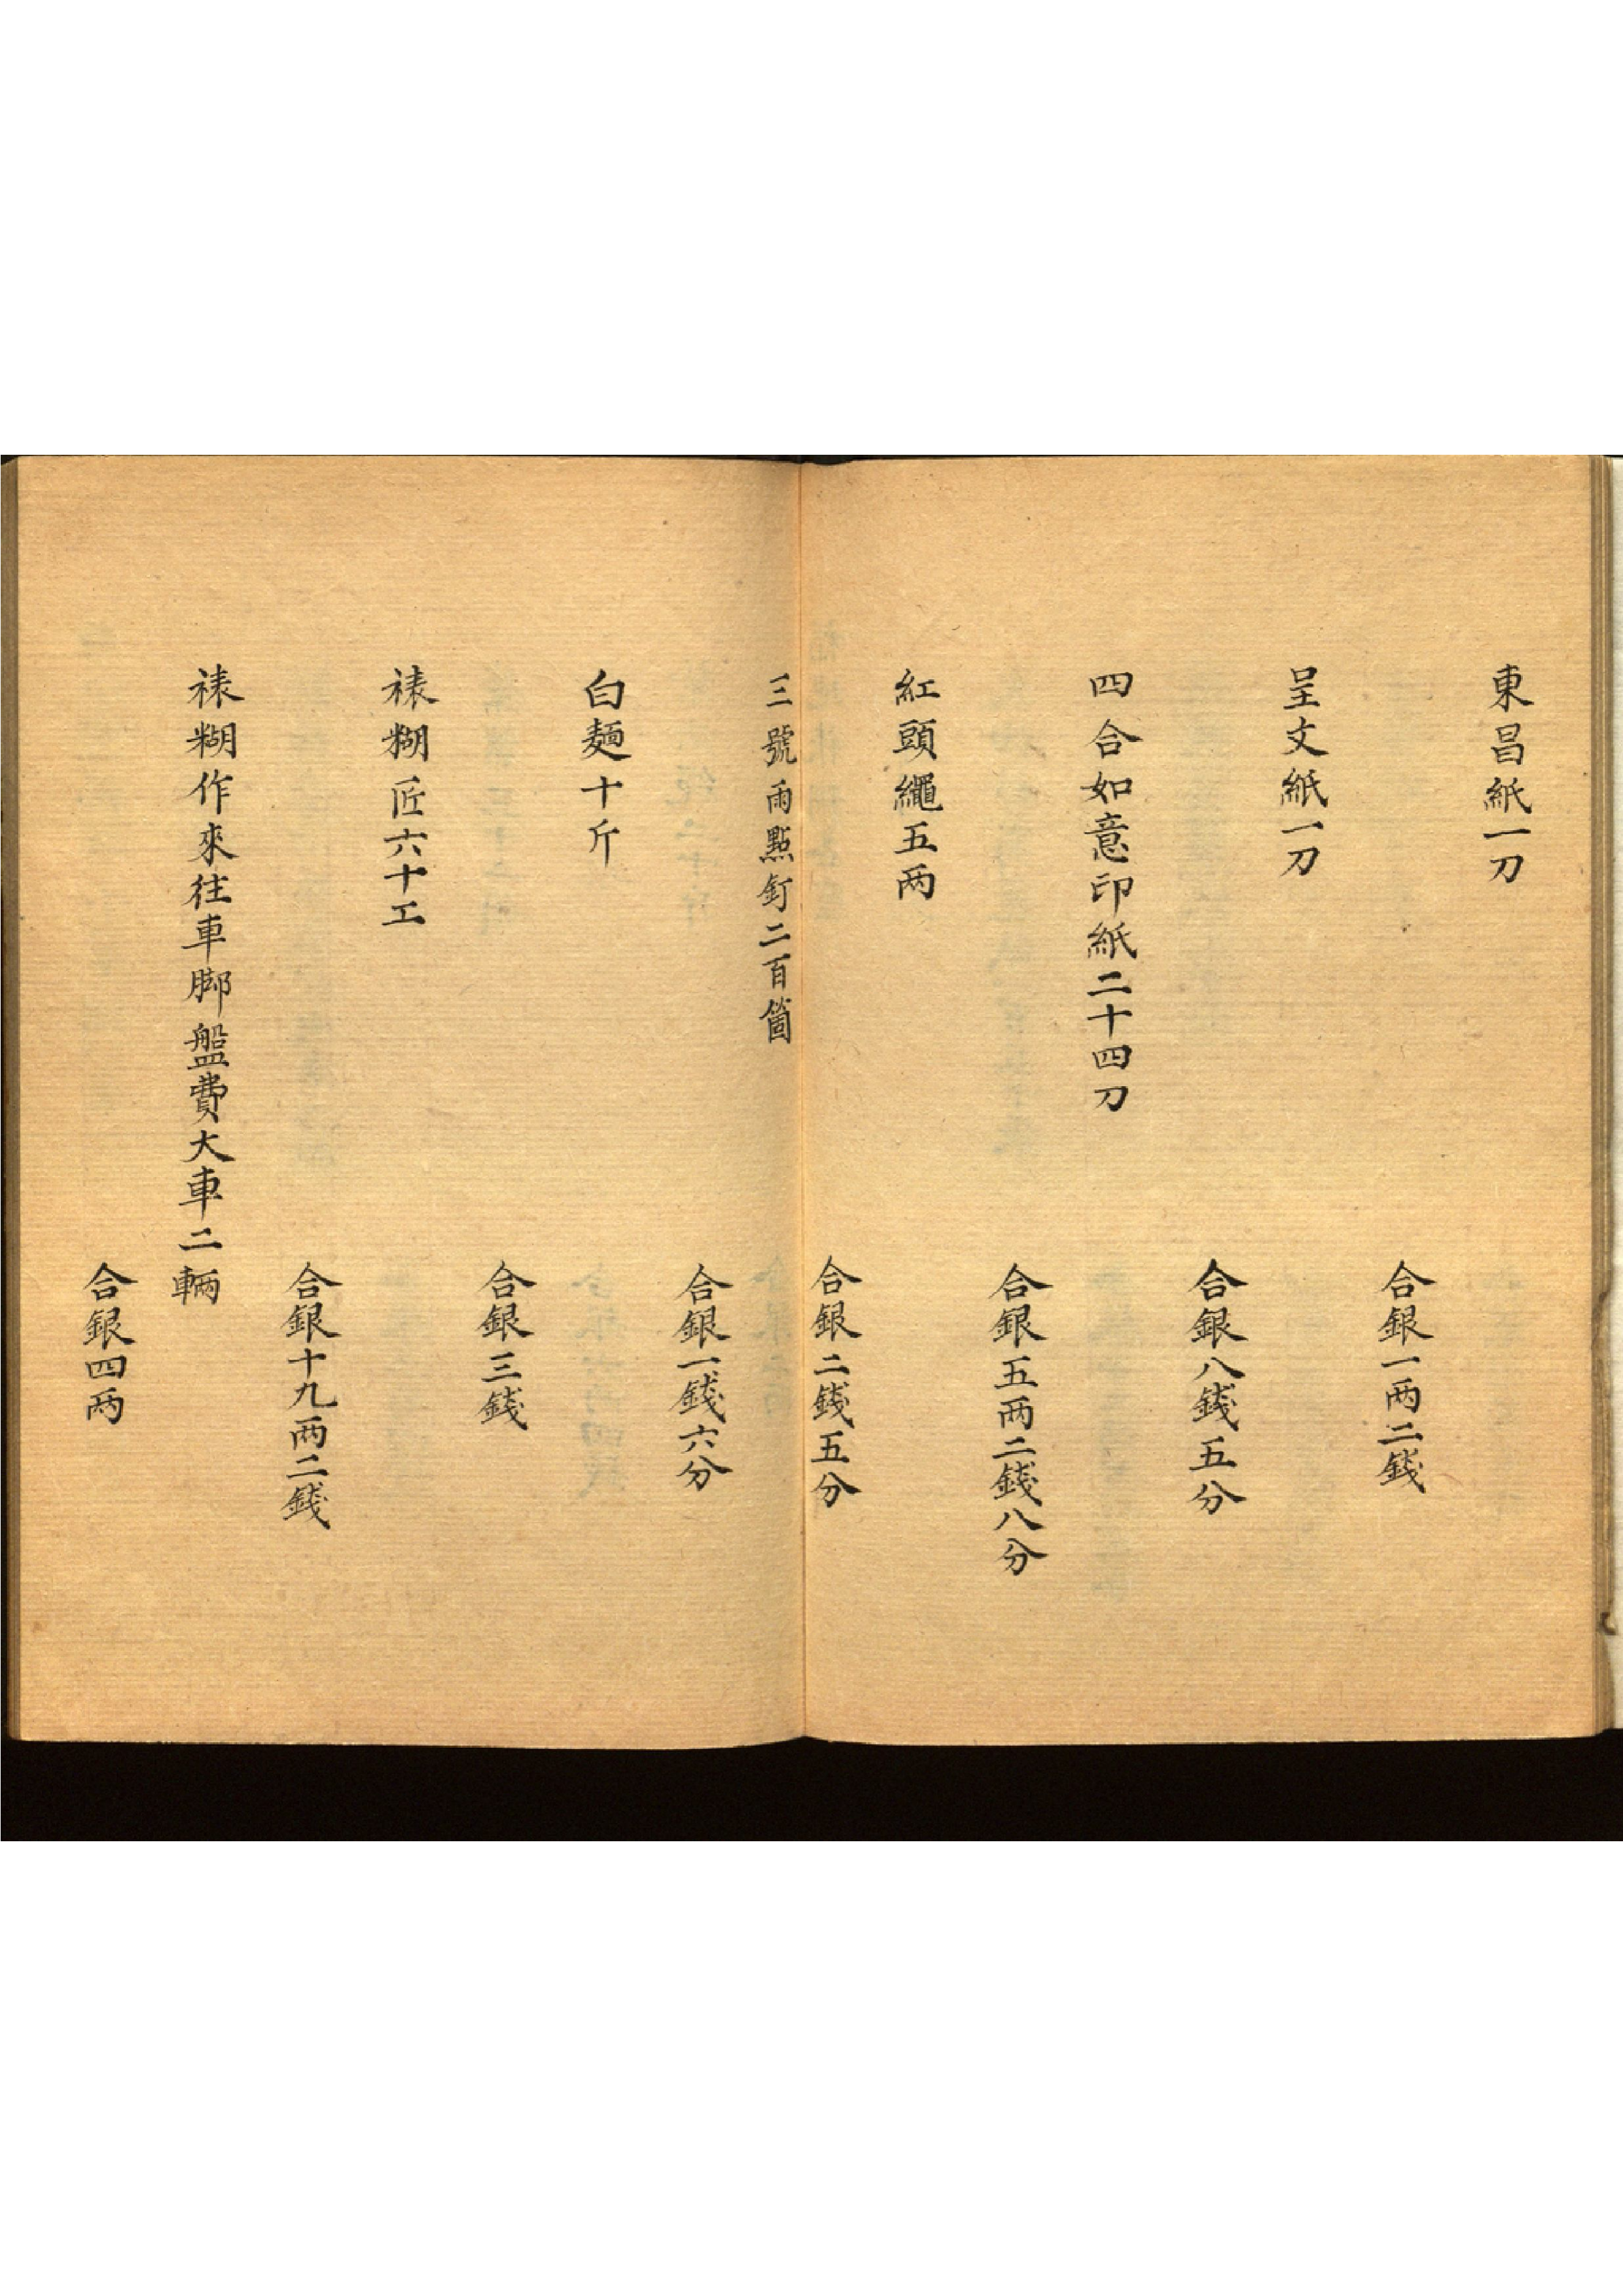 東昌紙一刀
合銀一两二錢
呈文紙一刀
合銀八錢五分
四合如意印紙二十四刀
合銀五两二錢八分
紅頭繩五两
合銀二錢五分
三號雨點釘二百箇
合銀一錢六分
白麵十斤
合銀三錢
裱糊匠六十工
合銀十九两二錢
裱糊作來往車脚盤費大車二輛
合銀四两